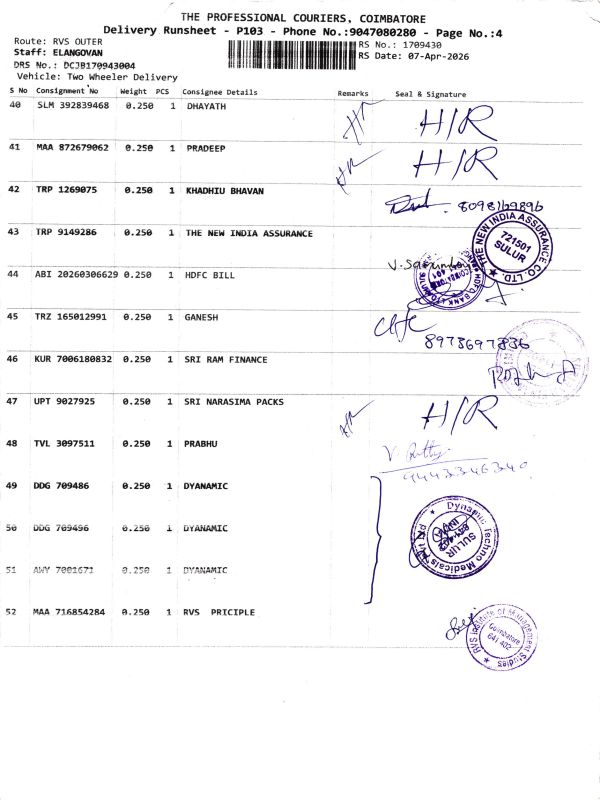 THE PROFESSIONAL COURIERS, COIMBATORE
Delivery Runsheet - P103 - Phone No.:9047080280 - Page No.:4
Route: RVS OUTER
RS No.: 1709430
Staff: ELANGOVAN
RS Date: 07-Apr-2026
DRS No.: DCJB170943004
Vehicle: Two Wheeler Delivery
S No Consignment No Weight PCS Consignee Details Remarks Seal & Signature
40 SLM 392839468 0.250 1 DHAYATH H/R
41 MAA 872679062 0.250 1 PRADEEP H/R
42 TRP 1269075 0.250 1 KHADHIU BHAVAN 8098169896
43 TRP 9149286 0.250 1 THE NEW INDIA ASSURANCE
THE NEW INDIA ASSURANCE CO. LTD.
721501
SULUR
44 ABI 20260306629 0.250 1 HDFC BILL
HDFC BANK
45 TRZ 165012991 0.250 1 GANESH
8973697836
46 KUR 7006180832 0.250 1 SRI RAM FINANCE
47 UPT 9027925 0.250 1 SRI NARASIMA PACKS H/R
48 TVL 3097511 0.250 1 PRABHU
9443346340
49 DDG 709486 0.250 1 DYANAMIC
50 DDG 709496 0.250 1 DYANAMIC
Dynamic Techno Medicals Pvt Ltd
SULUR
51 AWY 7001671 0.250 1 DYANAMIC
52 MAA 716854284 0.250 1 RVS PRICIPLE
RVS Institute of Management Studies
Coimbatore
641 402